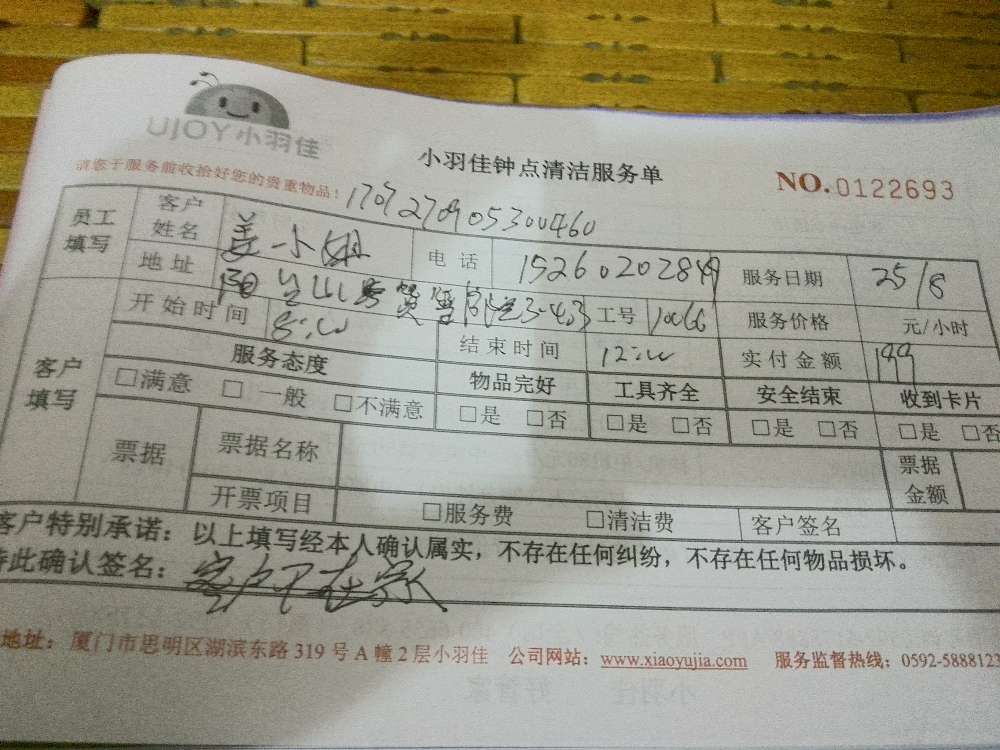 UJOY小羽佳
小羽佳钟点清洁服务单
NO.0122693
请您于服务前收拾好您的贵重物品！
员工填写 客户姓名 姜小姐 电话 15260202849 服务日期 25/8
地址 3-403 工号 10066 服务价格 元/小时
开始时间 8:00 结束时间 12:00 实付金额 199
客户填写 服务态度 物品完好 工具齐全 安全结束 收到卡片
□满意 □一般 □不满意 □是 □否 □是 □否 □是 □否 □是 □否
票据 票据名称 票据金额
开票项目 □服务费 □清洁费 客户签名
客户特别承诺：以上填写经本人确认属实，不存在任何纠纷，不存在任何物品损坏。
特此确认签名：客户不在家
地址：厦门市思明区湖滨东路319号A幢2层小羽佳 公司网站：www.xiaoyujia.com 服务监督热线：0592-5888123